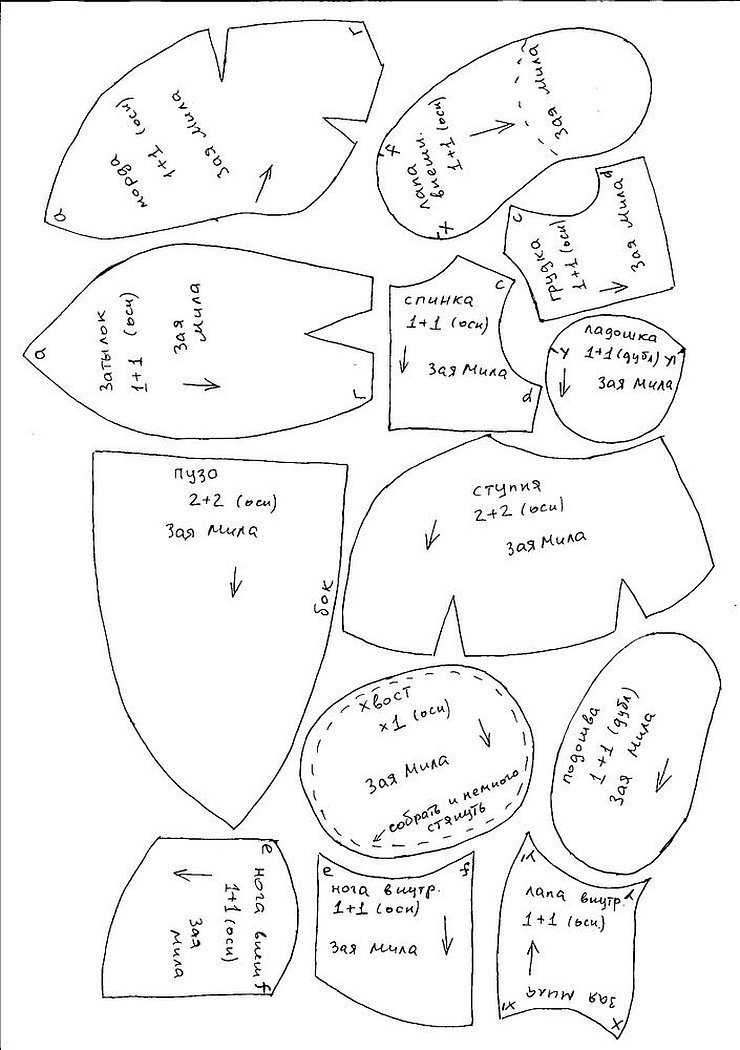 г
морда
1+1 (оси)
Зая Мила
а
лапа
внешн.
1+1 (оси)
Зая Мила
х
х
с
d
грудка
1+1 (оси)
Зая Мила
а
Затылок
1+1 (оси)
Зая
Мила
г
спинка
1+1 (оси)
Зая Мила
с
d
ладошка
у 1+1 (дубл) у
Зая Мила
пузо
2+2 (оси)
Зая Мила
бок
ступня
2+2 (оси)
Зая Мила
хвост
х1 (оси)
Зая Мила
собрать и немного
стянуть
подошва
1+1 (дубл)
Зая Мила
е
нога внеш
1+1 (оси)
Зая
Мила
f
е
f
нога внутр.
1+1 (оси)
Зая Мила
у
у
лапа внутр.
1+1 (оси)
Зая Мила
х
х